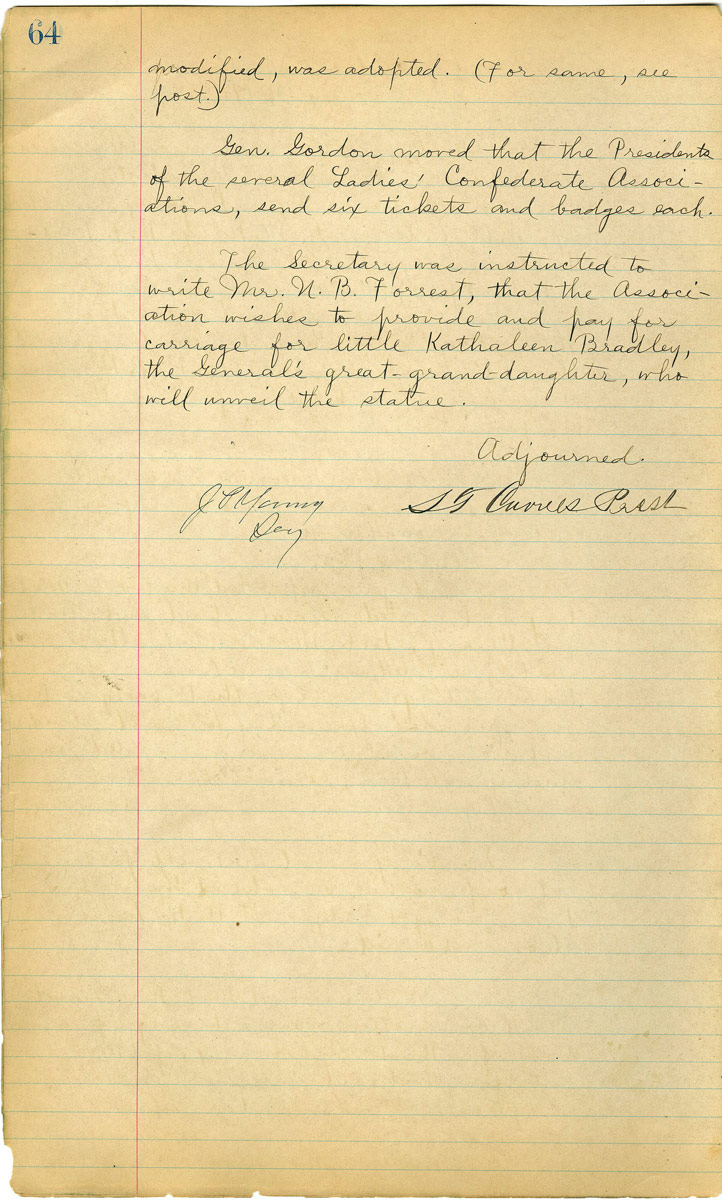 64
modified, was adopted. (For same, see
post.)
Gen. Gordon moved that the Presidents
of the several Ladies' Confederate Associ-
ations, send six tickets and badges each.
The Secretary was instructed to
write Mr. N. B. Forrest, that the Associ-
ation wishes to provide and pay for
carriage for little Kathaleen Bradley,
the General's great-grand-daughter, who
will unveil the statue.
Adjourned.
J P Young
S T Carnes Prest